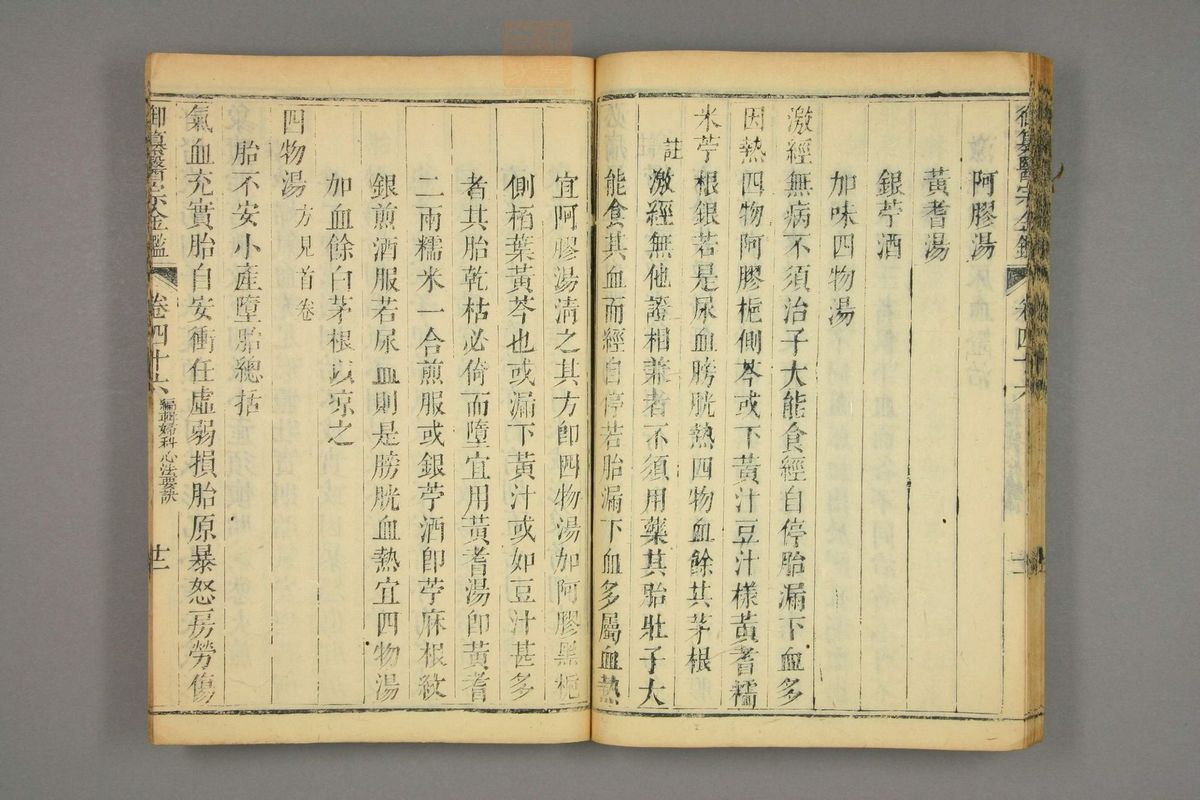 阿膠湯
黃耆湯
銀苧酒
加味四物湯
激經無病不須治子大能食經自停胎漏下血多
因熱四物阿膠梔側芩或下黃汁豆汁樣黃耆糯
米苧根銀若是尿血膀胱熱四物血餘共茅根
註
激經無他證相兼者不須用藥其胎壯子大
能食其血而經自停若胎漏下血多屬血熱
宜阿膠湯清之其方卽四物湯加阿膠黑梔
側栢葉黃芩也或漏下黃汁或如豆汁甚多
者其胎乾枯必倚而墮宜用黃耆湯卽黃耆
二兩糯米一合煎服或銀苧酒卽苧麻根紋
銀煎酒服若尿血則是膀胱血熱宜四物湯
加血餘白茅根以凉之
四物湯 方見首卷
胎不安小產墮胎總括
氣血充實胎自安衝任虛弱損胎原暴怒房勞傷
御纂醫宗金鑑 卷四十六 編輯婦科心法要訣 廿二